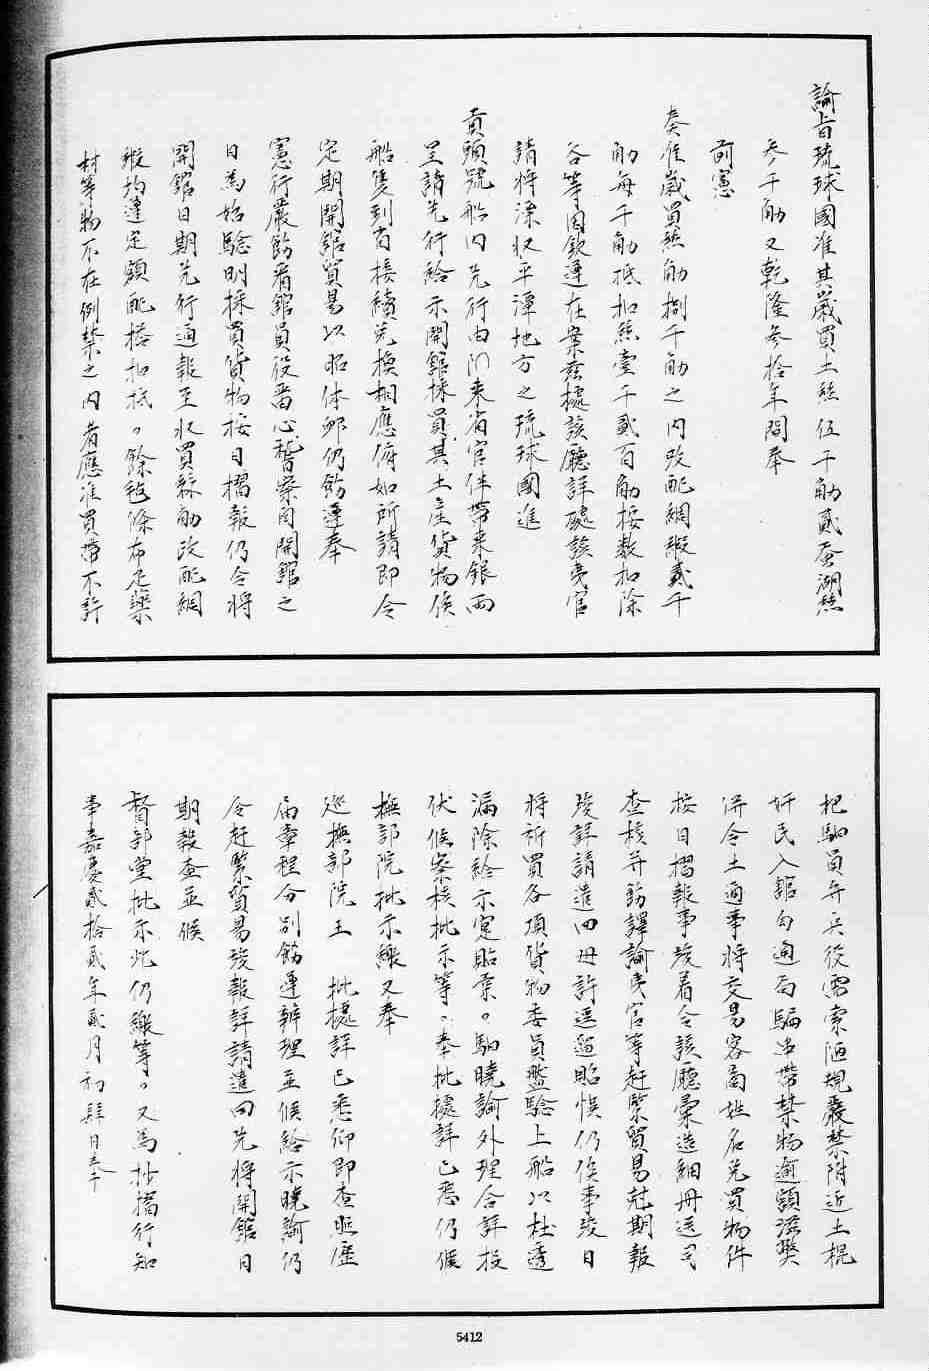 諭旨琉球國准其歲買土絲伍千觔貳蚕湖絲
叁千觔又乾隆叁拾年間奉
前憲
奏准歲買絲觔捌千觔之内改配綢緞貳千
觔每千觔抵扣絲壹千貳百觔按数扣除
各等因欽遵在案玆據該廳詳據該夷官
請將溙收平潭地方之琉球國進
貢頭號船内先行由闽来省官伴帶来銀両
呈請先行給示開舘採買其土産貨物俟
船隻到省接續兌換相應俯如所請即令
定期開舘貿易以昭体卹仍飭遵奉
憲行嚴飭看舘員役畱心稽察自開舘之
日為始驗明採買貨物按日摺報仍令將
開舘日期先行通報至收買絲觔改配綢
緞均遵定額配搭扣抵。餘毡條布疋藥
材等物不在例禁之内者應准買帶不許
把駟員弁兵役需索陋規嚴禁附近土棍
奸民入舘勾通局騙出帶禁物逾額滋獘
併令土通事將交易客啇姓名兌買物件
按日摺報事竣着令該廳彚造細冊送司
查核并飭譯諭夷官等赶緊貿易尅期報
竣詳請遣囬毋許逗遛貽悮仍俟事竣日
将所買各項貨物委員盤驗上船以杜透
漏除給示寔貼柔。駟曉諭外理合詳投
伏候察核批示等、奉批據詳已悉仍候
撫部院批示繳又奉
巡撫部院王　批據詳已悉仰即查照歷
届章程分别飭遵辨理並候給示曉諭仍
令赶緊貿易竣報詳請遣囬先将開舘日
期報查並候
督部堂批示此仍繳等。又為抄摺行知
事嘉慶貳拾貳年貳月初肆日奉
5412